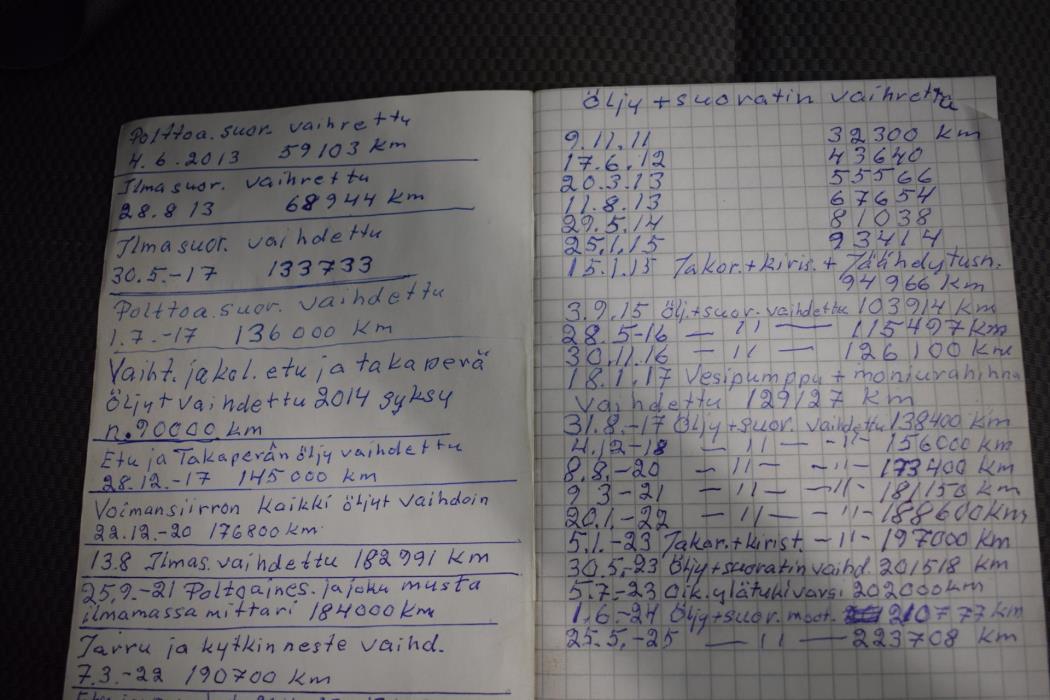 Polttoa.suor. vaihrettu
4.6.2013 59103 km
Ilmasuor. vaihrettu
28.8 13 68944 km
Ilmasuor. vaihdettu
30.5.-17 133733
Polttoa.suor. vaihdettu
1.7.-17 136000 km
Vaiht. jakol. etu ja takaperä
öljyt vaihdettu 2014 syksy
n.90000 km
Etu ja Takaperän öljy vaihdettu
28.12.-17 145000 km
Voimansiirron kaikki öljyt vaihdoin
22.12.-20 176800 km
13.8 Ilmas. vaihdettu 182991 km
25.9.-21 Poltoaines. ja joku musta
ilmamassa mittari 184000 km
Jarru ja kytkinneste vaihd.
7.3.-22 190700 km
Öljy + suoratin vaihretta
9.11.11 32300 km
17.6.12 43640
20.3.13 55566
11.8.13 67654
29.5.14 81038
25.1.15 93414
15.1.15 Jakor.+kiris.+ Jäähdytusn.
94966 km
3.9.15 ölj.+suor. vaihdettu 103914 km
28.5-16 — " — 115497 km
30.11.16 — " — 126100 km
18.1.17 Vesipumppu + moniurahihna
vaihdettu 129127 km
31.8.-17 Öljy+suor. vaihdettu 138400 km
4.12-18 — " — -"- 156000 km
8.8.-20 — " — -"- 173400 km
9 3-21 — " — -"- 181150 km
20.1.-22 — " — -"- 188600 km
5.1.-23 Jakor.+kirist. -"- 197000 km
30.5.-23 Öljy+suoratin vaihd. 201518 km
5.7.-23 Oik.ylätukivarsi 202000 km
1.6.-24 Öljy+suor. moot. 210777 km
25.5.-25 — " — 223708 km